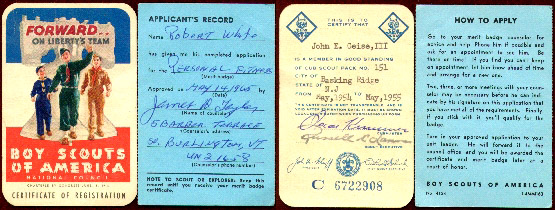 FORWARD..
ON LIBERTY'S TEAM
BOY SCOUTS
OF AMERICA
NATIONAL COUNCIL
CERTIFICATE OF REGISTRATION
APPLICANT'S RECORD
Name Robert White
has given me his completed application
for the Personal Fitness
(Merit badge)
Approved on May 14 1965 by
(Date)
James B. Taylor
(Name of counselor)
5 Barber Terrace
(Counselor's address)
So. Burlington, VT
UN2
(Counselor's phone number)
NOTE TO SCOUT OR EXPLORER: Keep this
record until you receive your merit badge
certificate.
THIS IS TO
CERTIFY THAT
John E. Geise, III
IS A MEMBER IN GOOD STANDING
OF CUB SCOUT PACK NO. 151
CITY OF Basking Ridge
STATE OF N.J.
FROM May, 1954 TO May, 1955
C 6722908
HOW TO APPLY
Go to your merit badge counselor for
advice and help. Phone him if possible and
ask for an appointment to see him. Be
there on time! If you find you can't keep
an appointment let him know ahead of time
and arrange for a new one.
Two, three, or more meetings with your counselor
may be necessary before he can indicate
by his signature on this application that
you have met all of the requirements. Finally
you click with it—you've qualified for the
badge!
Turn in your approved application to your
unit leader. He will forward it to the
council office and you will be awarded the
certificate and merit badge later on a
court of honor.
BOY SCOUTS OF AMERICA